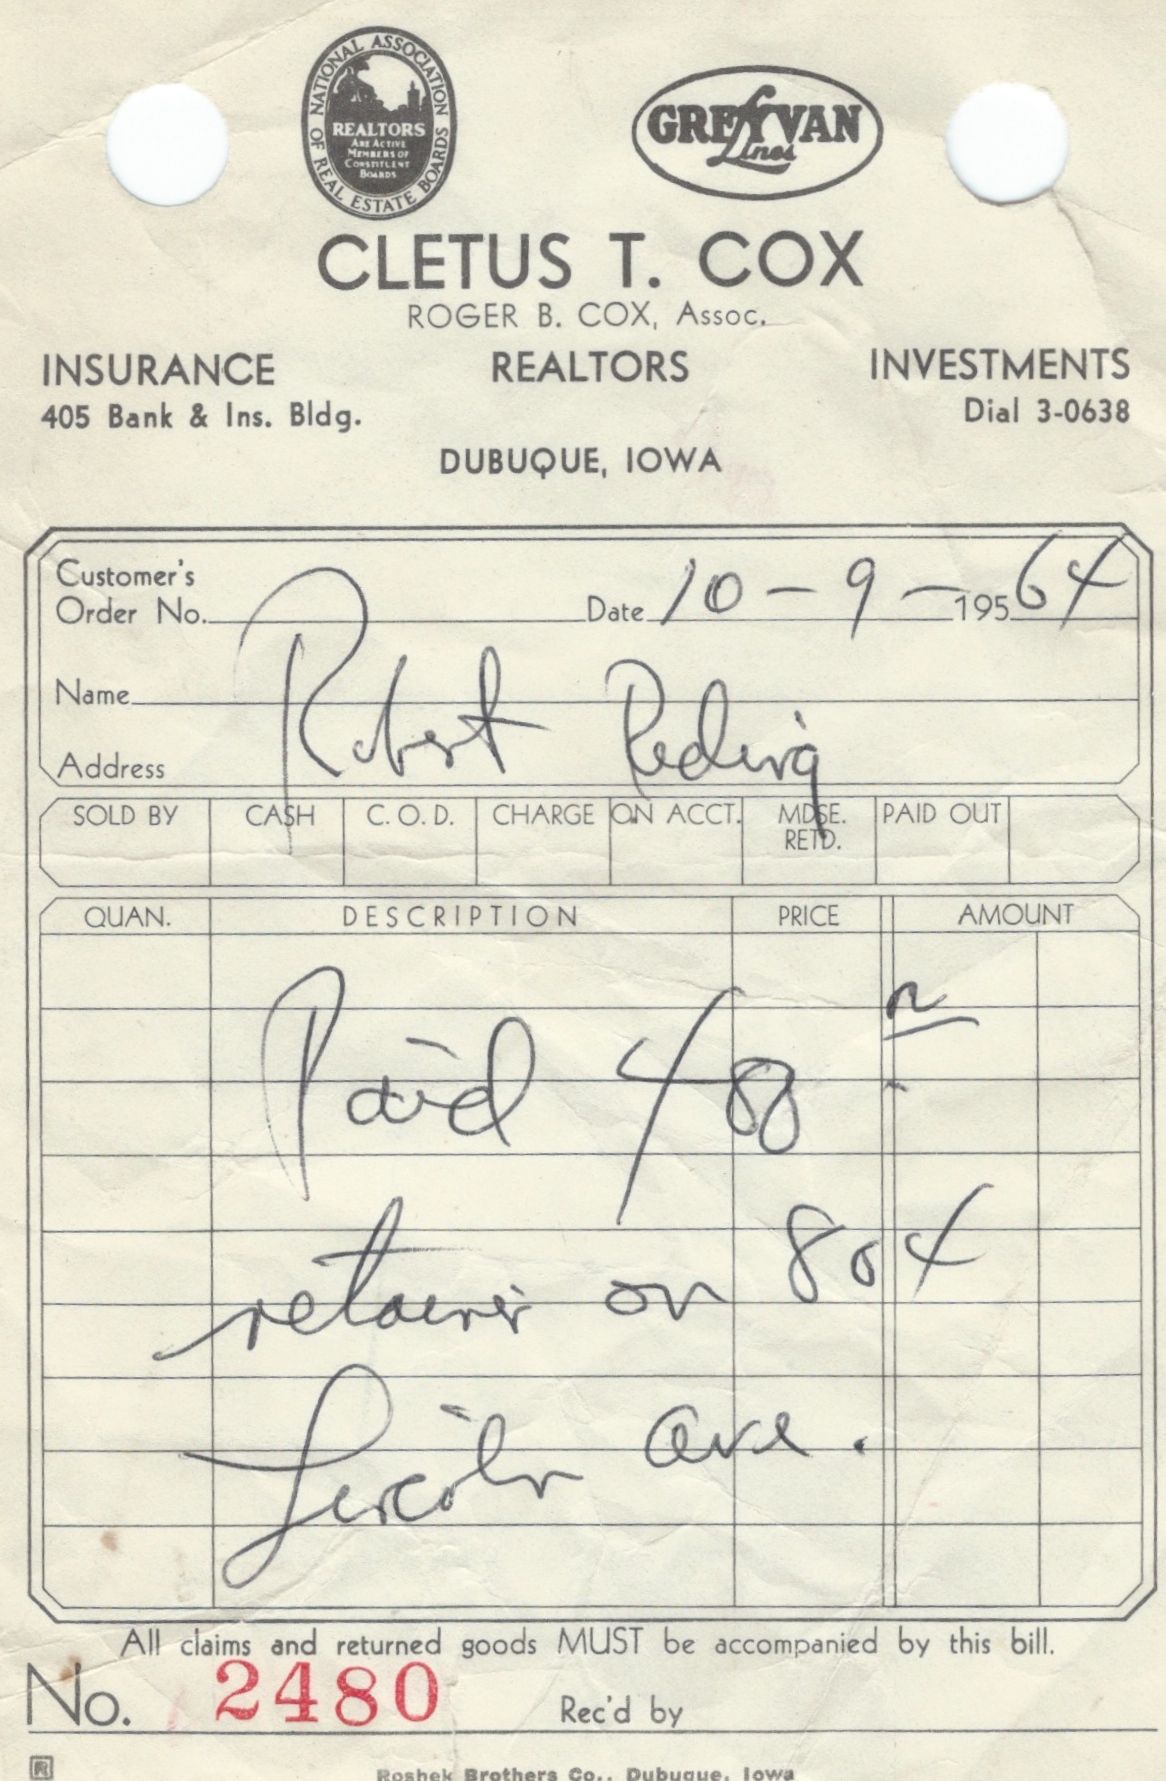 NATIONAL ASSOCIATION OF REAL ESTATE BOARDS
REALTORS
ARE ACTIVE
MEMBERS OF
CONSTITUENT
BOARDS
GREYVAN
Lines
CLETUS T. COX
ROGER B. COX, Assoc.
INSURANCE REALTORS INVESTMENTS
405 Bank & Ins. Bldg. Dial 3-0638
DUBUQUE, IOWA
Customer's
Order No. Date 10-9-195 64
Name Robert Reding
Address
SOLD BY CASH C. O. D. CHARGE ON ACCT. MDSE. RETD. PAID OUT
QUAN. DESCRIPTION PRICE AMOUNT
Paid 488
retainer on 804
Lincoln Ave.
All claims and returned goods MUST be accompanied by this bill.
No. 2480 Rec'd by
R
Roshek Brothers Co., Dubuque, Iowa